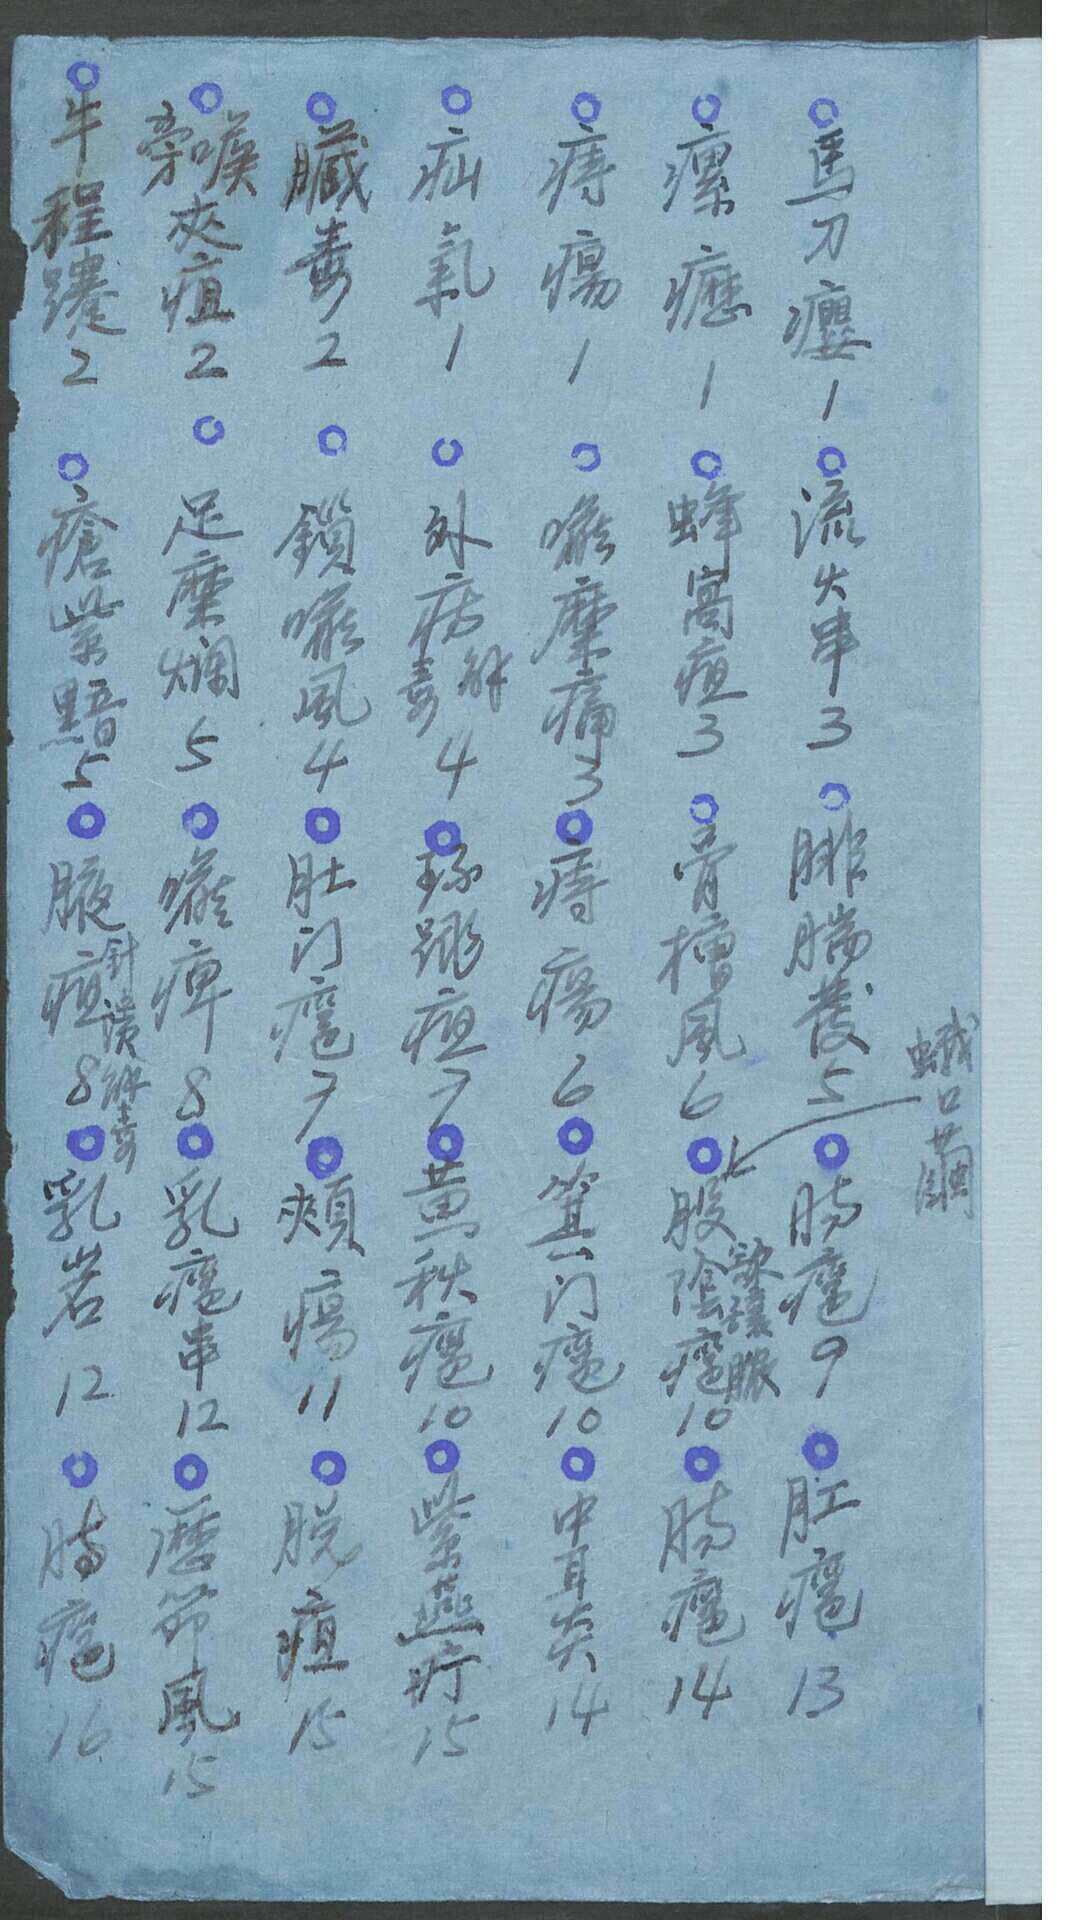 馬刀癭1
瘰癧1
痔瘍1
疝氣1
臟毒2
旁喉夾疽2
牛程蹇2
流火串3
蜂窩疽3
喉糜痛3
外疡 解毒4
鎖喉風4
足糜爛5
瘡紫黯5
腓腨發5
骨槽風6
痔瘍6
環跳疽7
肚门癰7
喉痺8
腋疽8
針潰解毒
腸癰9
股陰癰10
箕门癰10
黄秋癰10
頰瘍11
乳癰串12
乳岩12
肛癰13
腸癰14
中耳炎14
紫燕疔15
脱疽15
歷節風15
腸癰16
蛾口